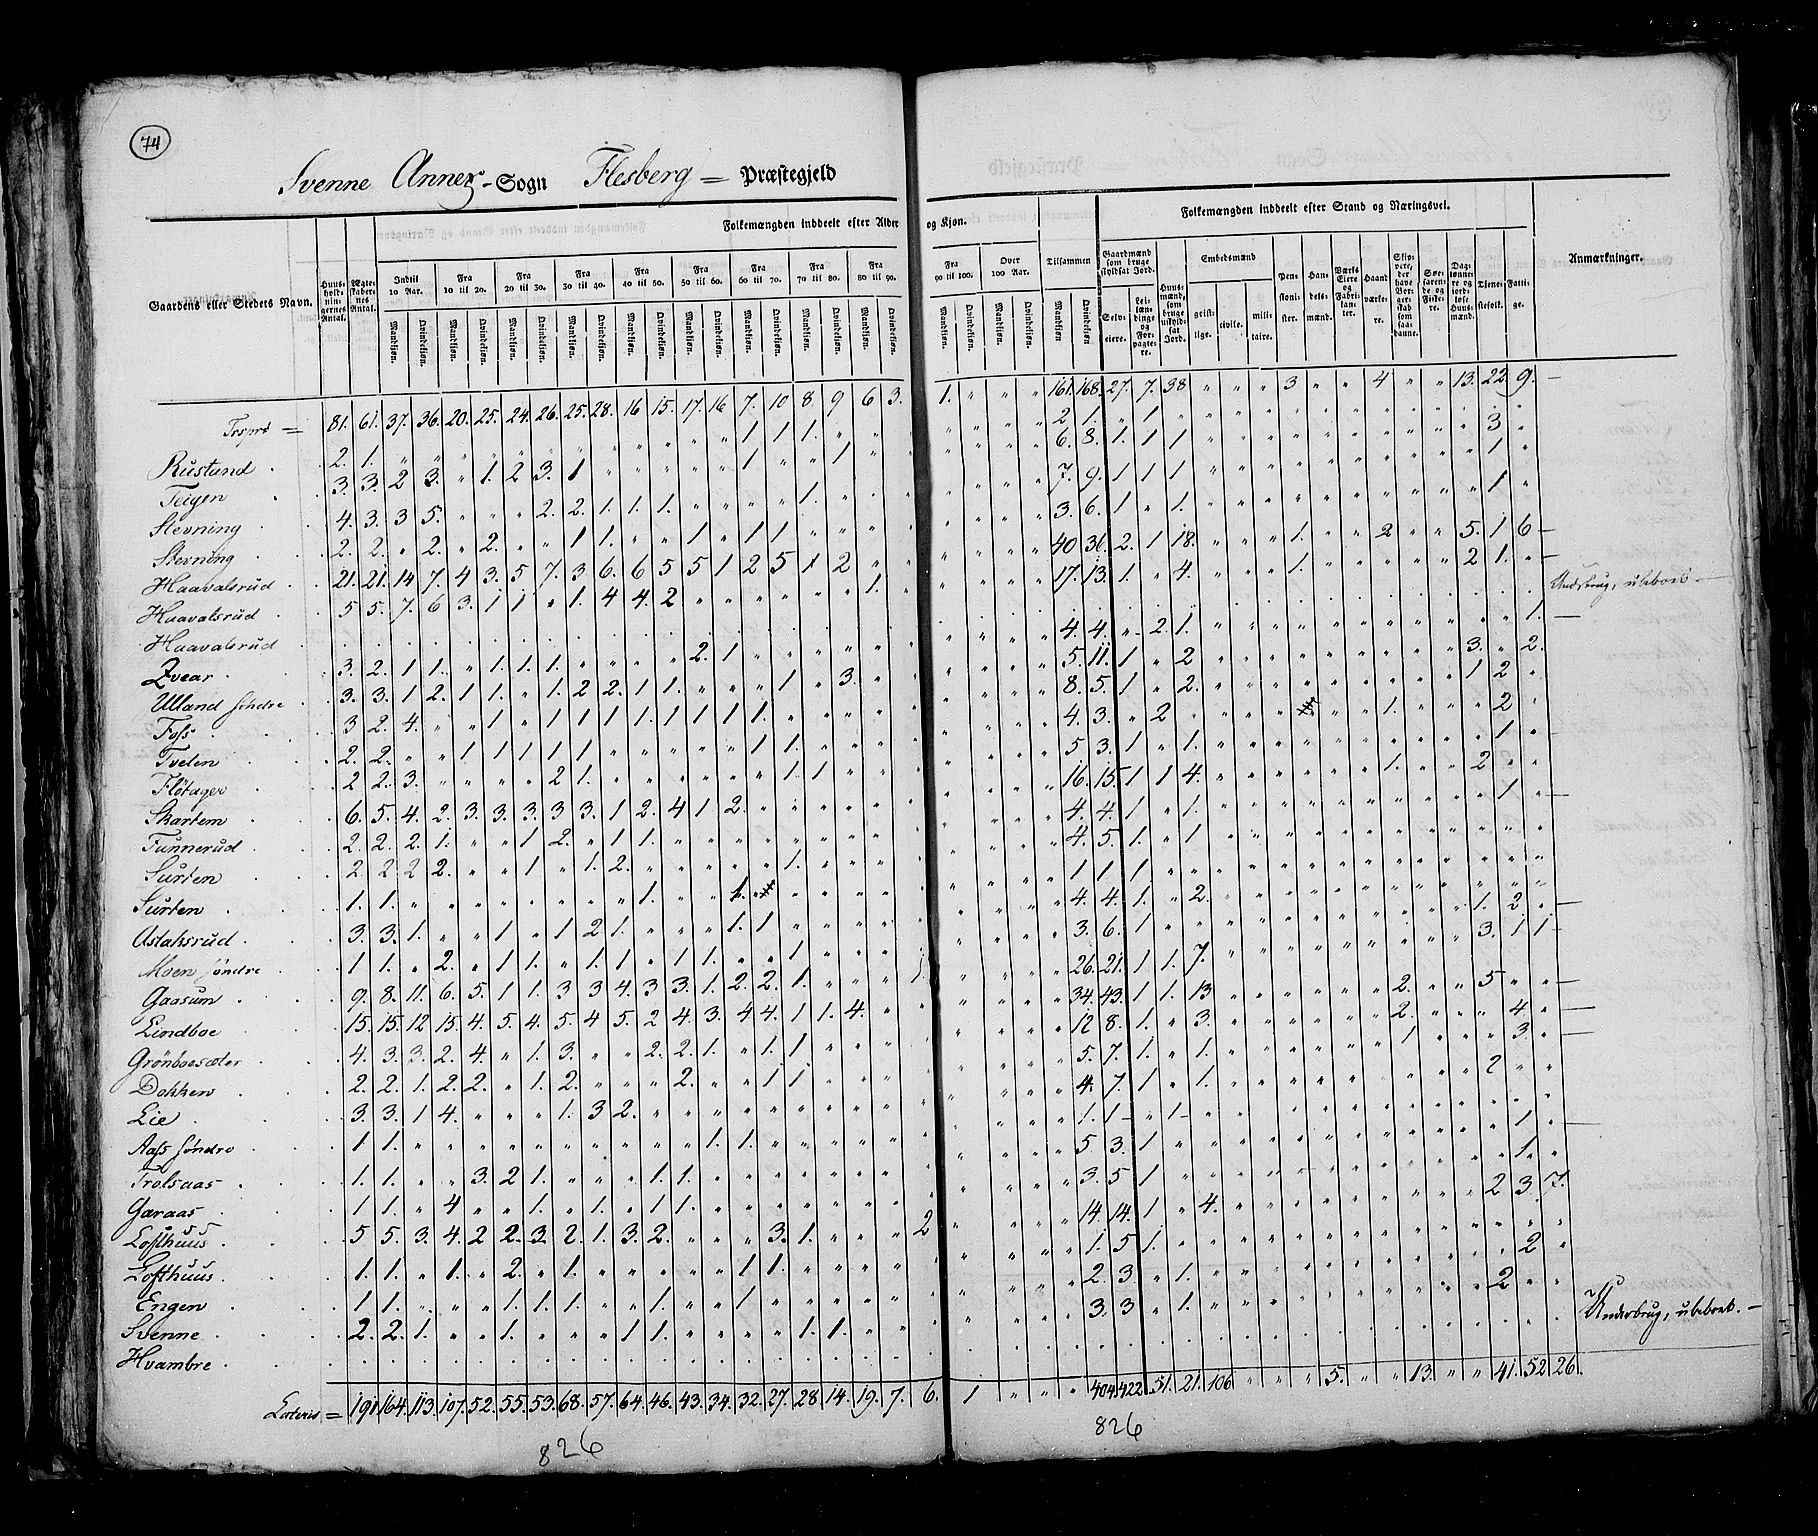 74
Svenne Annex-Sogn Flesberg = Præstegjeld
Gaardens eller Stedets Navn.
Huusholdningernes Antal.
Ægteskabernes Antal.
Folkemængden inddeelt efter Alder og Kjøn.
Indtil 10 Aar.
Fra 10 til 20.
Fra 20 til 30.
Fra 30 til 40.
Fra 40 til 50.
Fra 50 til 60.
Fra 60 til 70.
Fra 70 til 80.
Fra 80 til 90.
Fra 90 til 100.
Over 100 Aar.
Tilsammen
Mandkjøn. Qvindekjøn.
Folkemængden inddeelt efter Stand og Næringsvei.
Gaardmænd som bruge skyldsat Jord.
Selveiere.
Leilændinge og Forpagtere.
Huusmænd, som bruge uskyldsat Jord.
Embedsmænd
geistlige. civile. militaire.
Pensionister.
Handelsmænd.
Værks Eiere og Fabrikanter.
Haandværkere.
Søefarende og Fiskere.
Daglønnere og jordløse Huusmænd.
Tjenestefolk.
Fattige.
Anmærkninger.
81. 61. 37. 36. 20. 25. 24. 26. 25. 28. 16 15. 17. 16 7. 10 8. 9 6 3. 1. " " " 161. 168. 27. 7. 38 " " " 3 " " 4 " " 13. 22. 9. —
Rustand 2. 1. " " " " " " " " " " " " 1 1 1. " " " 2 1. " 1
Teigen 3. 3. 2 3. " 1. 2 3. 1 " " " " " 1 " " 1 " " 6. 8. 1. 1 1 3
Stevning 4. 3. 3 5. " " " 2. 2. 1. 1. 1. " " " " 1. " " " 7. 9. 1 1 1 1
Stevning 2. 2. " 2. " 2. " " 1 1. " " 1 " 1 1 " " " " 3. 6. 1 " 1. 1
Haavalsrud 21. 21. 14 7. 4 3. 5 7. 3 6. 6 5 5 1 2 5 1 2 " " 40 36. 2. 1 18. 1. 2 5. 1 6 —
Haavalsrud 5 5. 7. 6 3. 1 1 " 1. 4 4. 2 " " " " " " 1. " 17. 13. 1. " 4. 1. 2 1. " —
Haavalsrud Underbrug, ubeboet —
Qvear 3. 2. 1 1. " 1. 1. 1. " " " " 2. 1 " " " " " " 4. 4. " 2. 1. 1. —
Ulland søndre 3. 3. 1 2. 1 1. " 1. 2 2. 1 1. " " " 1 " 3. " " 5. 11. 1 " 2 3. " 2.
Foss 3 2. 4. " " 1 " 1 1 1 1. 1 1 1 1. " " " " " 8. 5. 1 " 2. 1 2
Tvelen 2. 2. " " 1 1 1 1 1 " " " " " 1 1. " " " " 4. 3. " 2 1. 2
Fløtager 2 2. 3. " " " " 2 1. " " " " " " 1. 1 " " " 5 3. 1 " 1. 1
Skartem 6. 5. 4. 2. 3. 3. 3. 3 3. 1 2. 4 1 2. " " " " " " 16. 15. 1 1 4. 1. 2
Tunnerud 2. 2. 2. 1. " " 1 2. " 1 1. " " " " " " " " " 4. 4. 1 " 1. 1
Surten 2. 2. 2 2. " " 1 " 1. 2. " " " " " 1. " " " " 4. 5. 1. " 1
Surten 1. 1. " " " " " " " " 1. " " 1. " " " " " " 1 1 1
Aslaksrud 3. 3. 1. " " 1 " 1 2 1. " " " 1. 1 " " " " " 4. 4. 1. " 2. 1. 2 " —
Moen søndre 1 1. " 2. " 1 1. " 1. 1 " 1 1. " " 1 " " " " 3. 6. 1 3. 1 1 —
Gaasum 9. 8. 11. 6. 5. 1 1. 3 3 4. 3 3. 1. 2. 2. 1. " " " 1 26. 21. 1 1. 7. 2. 5
Lindboe 15. 15. 12 15. 4. 5. 4. 5. 4 5. 2 4. 3. 4 4. 1 1. 4. " " 34. 43. 1 1. 13 2. " " " 4 —
Grønboesæter 4. 3. 3. 2. 4 " 1. 3. " " 2. 2. 1. " 1. 1 " " " " 12 8. 1. " 3. 1 3. —
Dokken 2. 2. 1. 2. 2. " 1. 2. " " " 2. " " 1 1 " " " " 5. 7. 1. " 1. 2
Lie 3. 3. 1 4. " " " 1. 3 2. " " " " " " " " " " 4. 7. 1 " 1.
Aass søndre 1 1. " " " " " " " " " " 1. 1. " " " " " " 1. 1 " 1 1
Trolsaas 1. 1. " " 3. 2 1. " " " 1 1. " " " " " " " " 5 3. 1 1
Garaas 1. 1. " 4 " " 1. " 1. " 1 1. " " " " " " " " 3. 5. 1 2 3. 7.
Lofthuus 5 5. 3. 4. 2 2. 3. 2. 1. 3. 2. " " " 3. 1. " " " 2 14. 14. 1 " 4.
Lofthuus 1. 1. " 1. " 2. " 1. " " " " " 1 1. " " " " " 1. 5. 1. 2
Engen 1 1. " " " 1. 1. 1. " " 1. " " 1 " " " " " " 2. 3. " 1. 2
Svenne 2. 2. 1. " " 1. " " " 1 1. " " " " 1. 1. " " " 3. 3 " 1. Underbrug, ubeboet. —
Hvambre
Lateris = 191 164. 113. 107. 52. 55. 53. 68. 57. 64. 46. 43. 34. 32. 27. 28 14. 19. 7. 6. 1 " " " 404. 422. 51. 21. 106 " " " 5. " " 13. " " 41. 52 26.
826
826